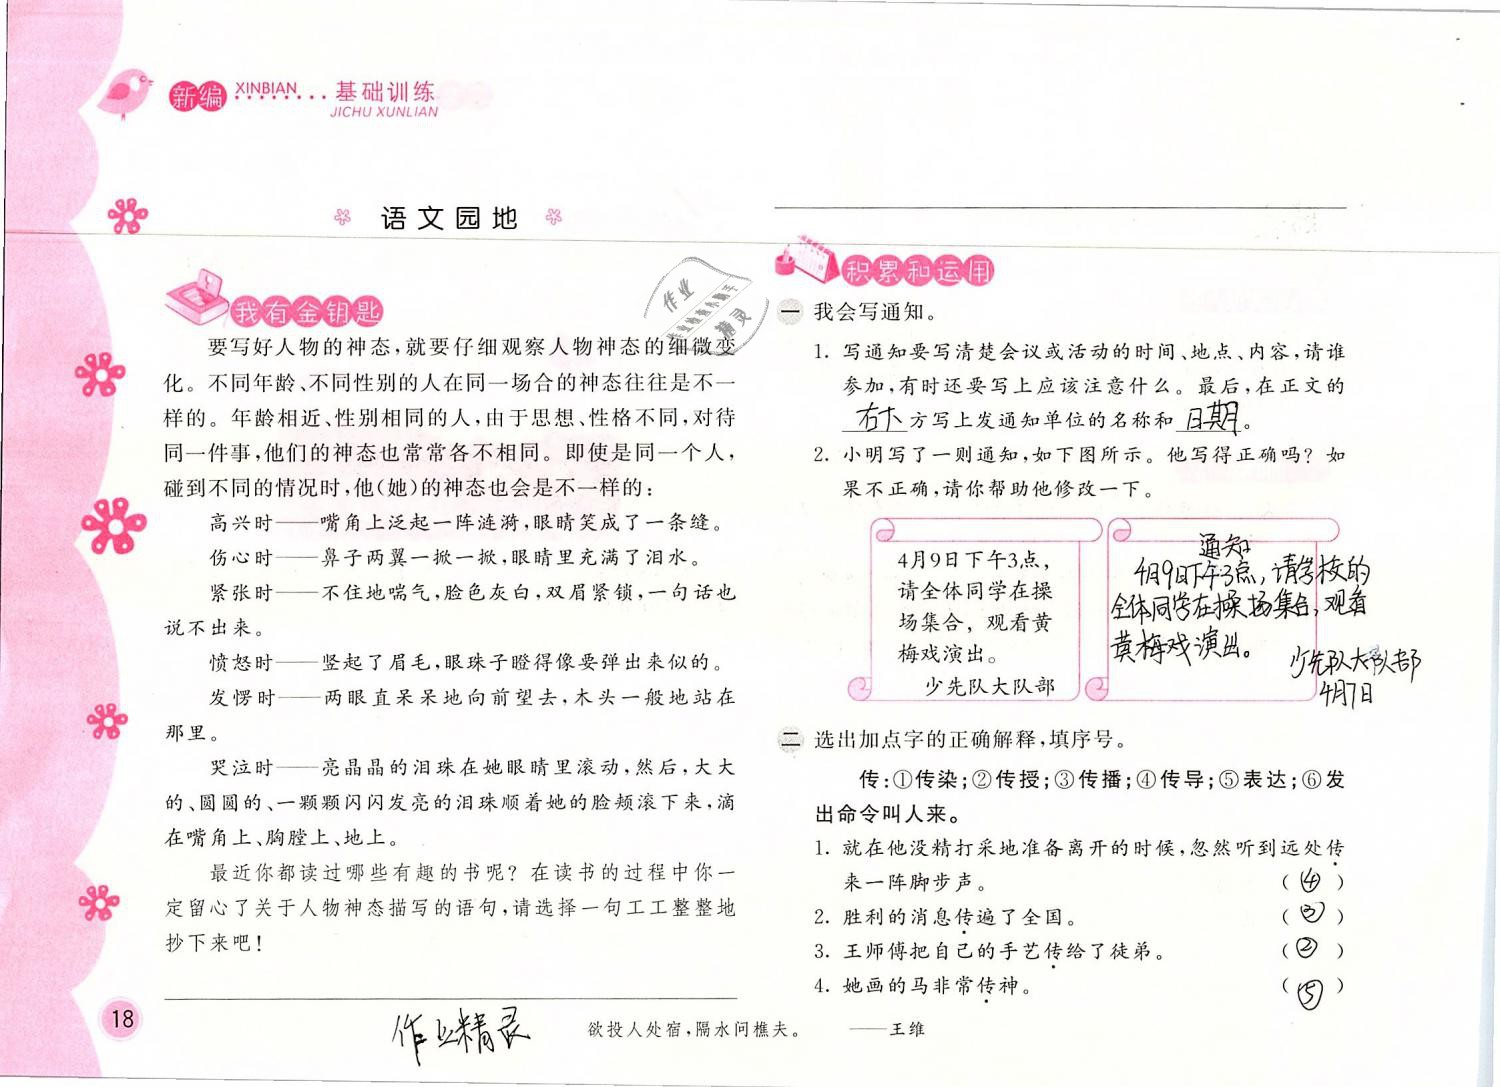 新编 XINBIAN 基础训练
JICHU XUNLIAN
语文园地
我有金钥匙
要写好人物的神态,就要仔细观察人物神态的细微变
化。不同年龄、不同性别的人在同一场合的神态往往是不一
样的。年龄相近、性别相同的人,由于思想、性格不同,对待
同一件事,他们的神态也常常各不相同。即使是同一个人,
碰到不同的情况时,他(她)的神态也会是不一样的:
高兴时——嘴角上泛起一阵涟漪,眼睛笑成了一条缝。
伤心时——鼻子两翼一掀一掀,眼睛里充满了泪水。
紧张时——不住地喘气,脸色灰白,双眉紧锁,一句话也
说不出来。
愤怒时——竖起了眉毛,眼珠子瞪得像要弹出来似的。
发愣时——两眼直呆呆地向前望去,木头一般地站在
那里。
哭泣时——亮晶晶的泪珠在她眼睛里滚动,然后,大大
的、圆圆的、一颗颗闪闪发亮的泪珠顺着她的脸颊滚下来,滴
在嘴角上、胸膛上、地上。
最近你都读过哪些有趣的书呢?在读书的过程中你一
定留心了关于人物神态描写的语句,请选择一句工工整整地
抄下来吧!
18
作业精灵
作业
精灵
积累和运用
一 我会写通知。
1. 写通知要写清楚会议或活动的时间、地点、内容,请谁
参加,有时还要写上应该注意什么。最后,在正文的
右下方写上发通知单位的名称和日期。
2. 小明写了一则通知,如下图所示。他写得正确吗?如
果不正确,请你帮助他修改一下。
4月9日下午3点,
请全体同学在操
场集合,观看黄
梅戏演出。
少先队大队部
通知
4月9日下午3点,请学校的
全体同学在操场集合,观看
黄梅戏演出。
少先队大队部
4月7日
二 选出加点字的正确解释,填序号。
传:①传染;②传授;③传播;④传导;⑤表达;⑥发
出命令叫人来。
1. 就在他没精打采地准备离开的时候,忽然听到远处传
来一阵脚步声。 (④)
2. 胜利的消息传遍了全国。 (③)
3. 王师傅把自己的手艺传给了徒弟。 (②)
4. 她画的马非常传神。 (⑤)
欲投人处宿,隔水问樵夫。 ——王维